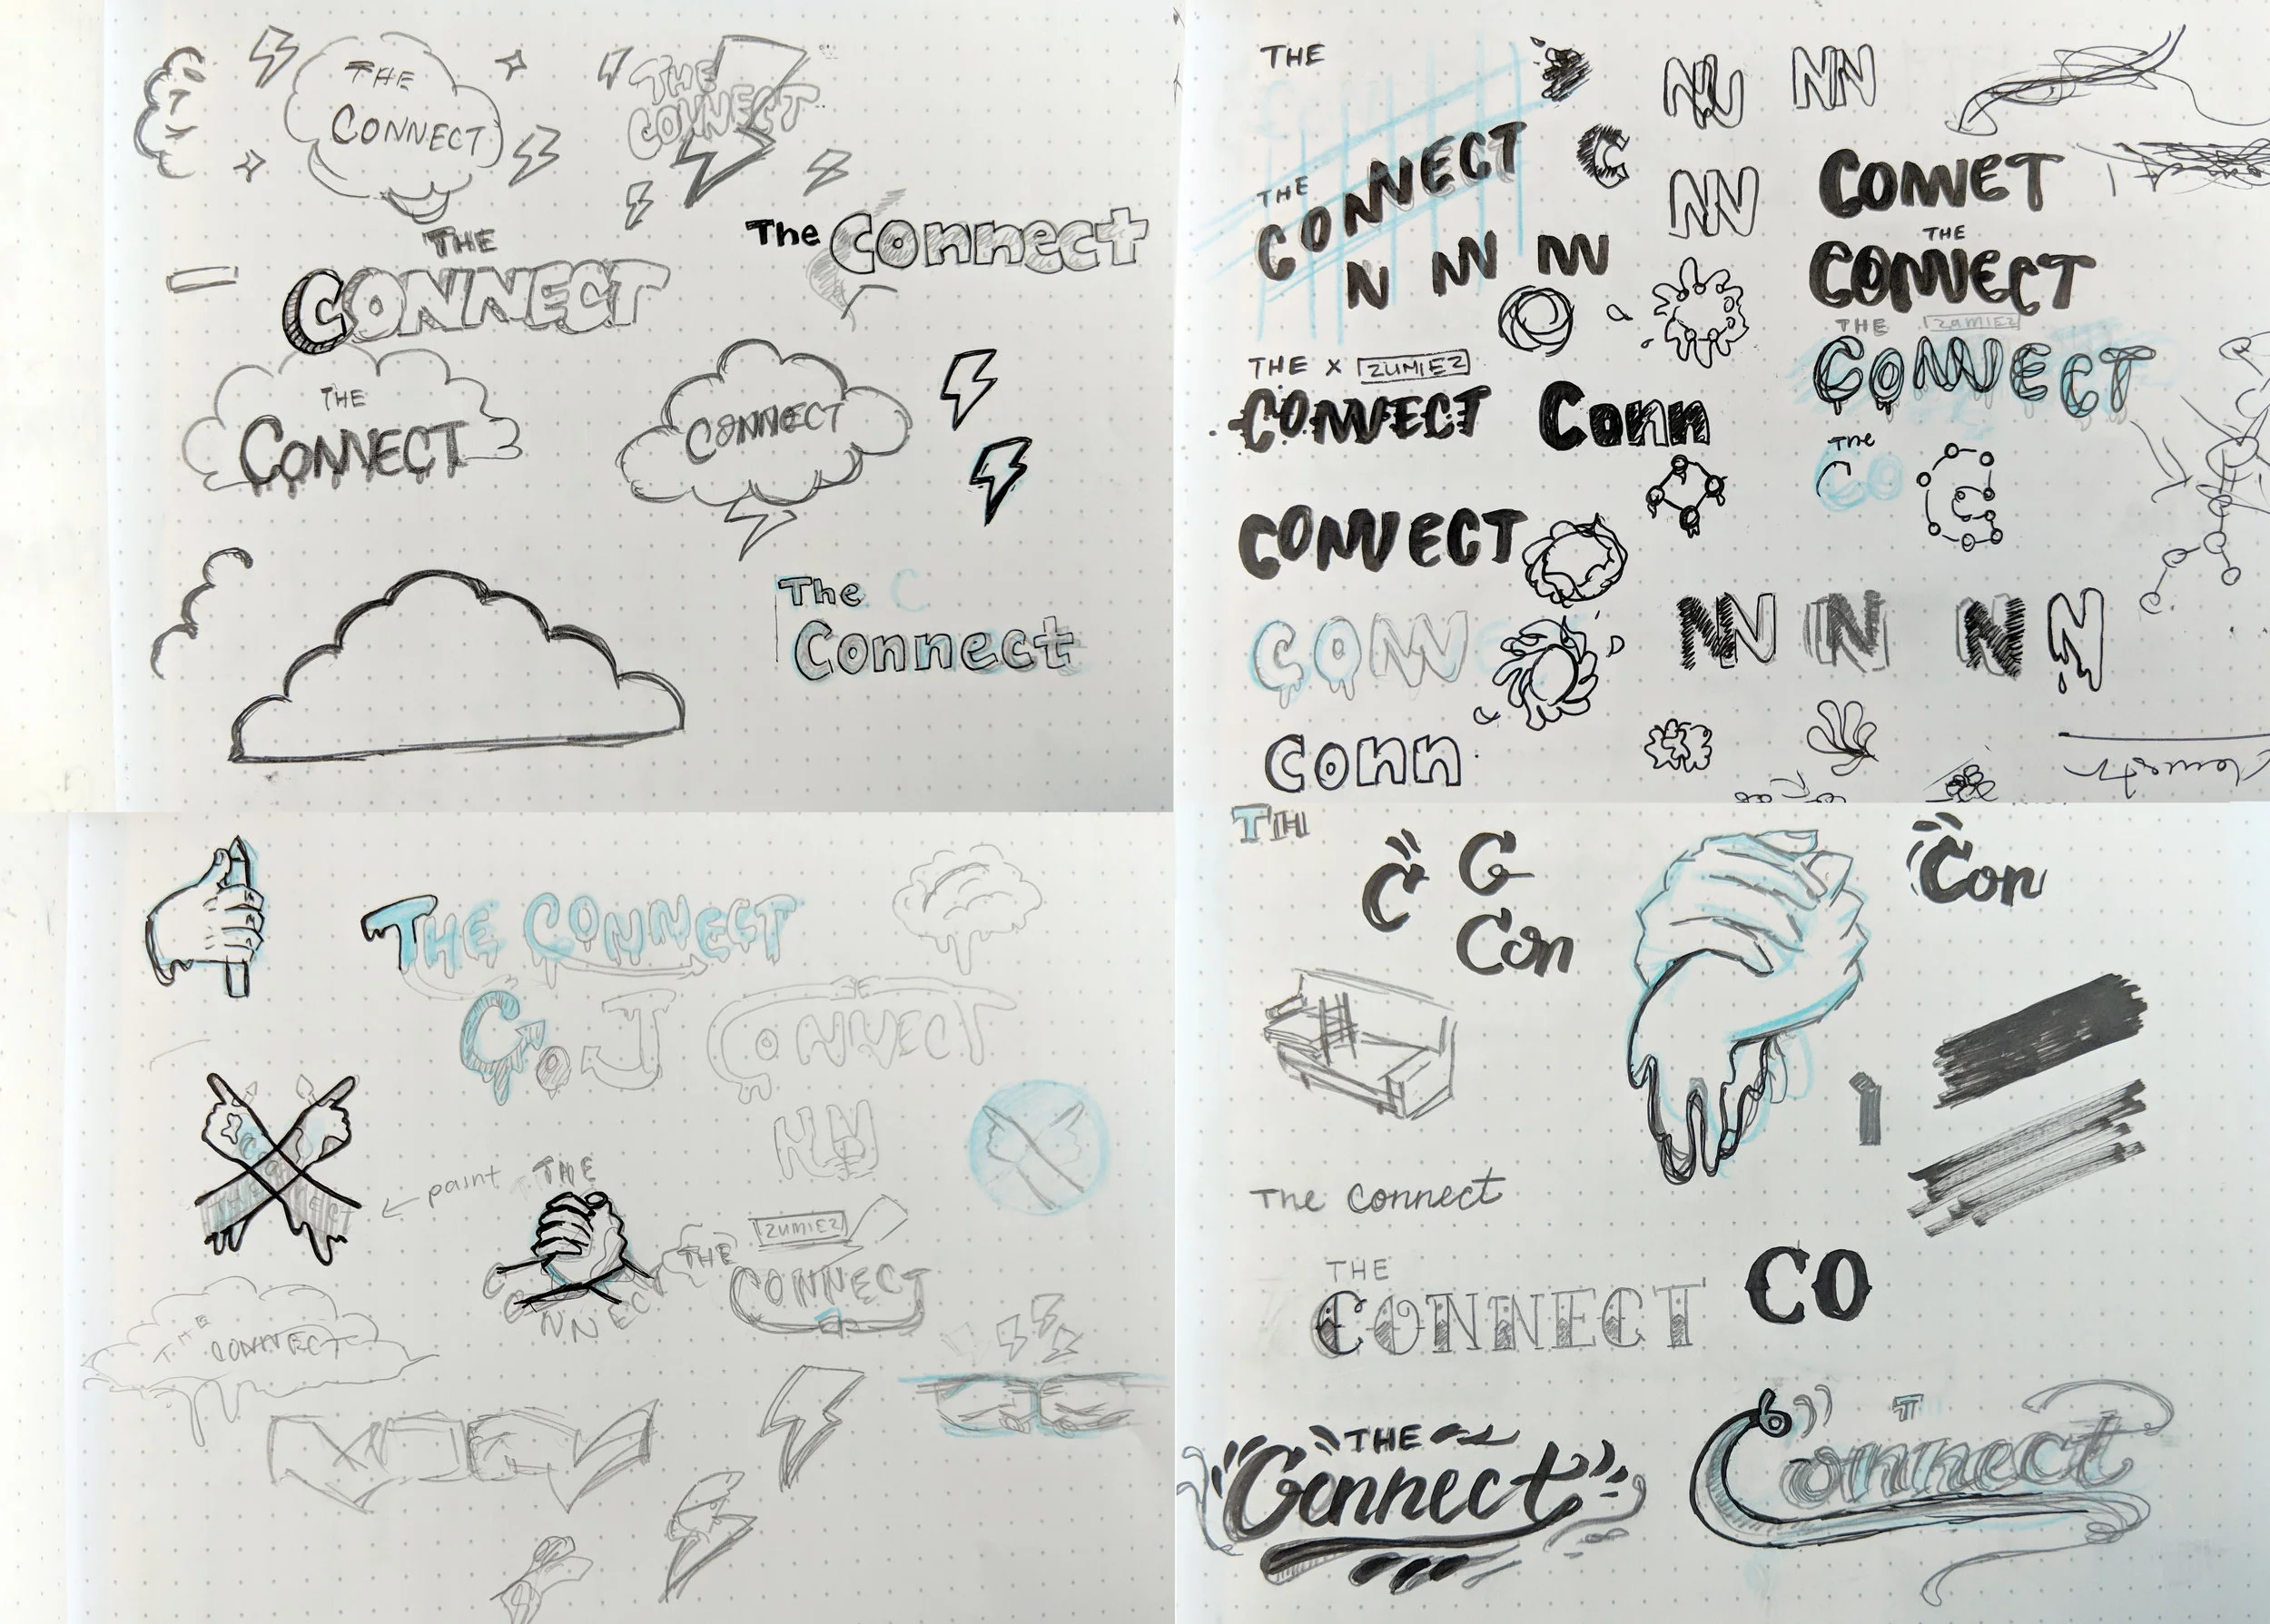 THE
CONNECT
THE
CONNECT
THE
CONNECT
The Connect
THE
CONNECT
CONNECT
The C
Connect
THE
NN
NN
THE
CONNECT
C
NN
CONNET
N NN NN
THE
CONNECT
THE X ZUMIEZ
CONNECT
Conn
THE ZUMIEZ
CONNECT
The
CO
C
CONNECT
CONN
NN N N N
Conn
THE CONNECT
C O J
CONNECT
NN
paint
THE
CONNECT
THE
ZUMIEZ
CONNECT
THE CONNECT
TH
C
C
Con
Con
The Connect
THE
CONNECT
CO
THE
Connect
T
Connect